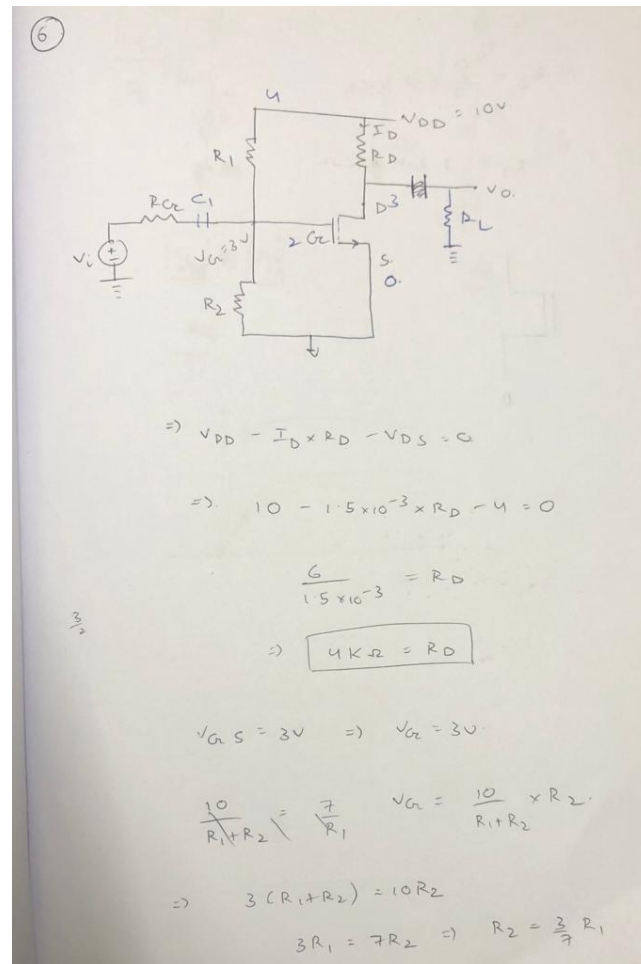 6
4
VDD = 10V
ID
R1
RD
RG C1
Vo
D 3
RL
VG = 3V
2 G
Vi
S
0
R2
=> VDD - ID × RD - VDS = 0
=> 10 - 1.5×10^-3 × RD - 4 = 0
6 / 1.5×10^-3 = RD
3/2
=> 4KΩ = RD
VGS = 3V => VG = 3V
10 / R1+R2 = 7 / R1 VG = 10 / R1+R2 × R2
=> 3(R1+R2) = 10R2
3R1 = 7R2 => R2 = 3/7 R1